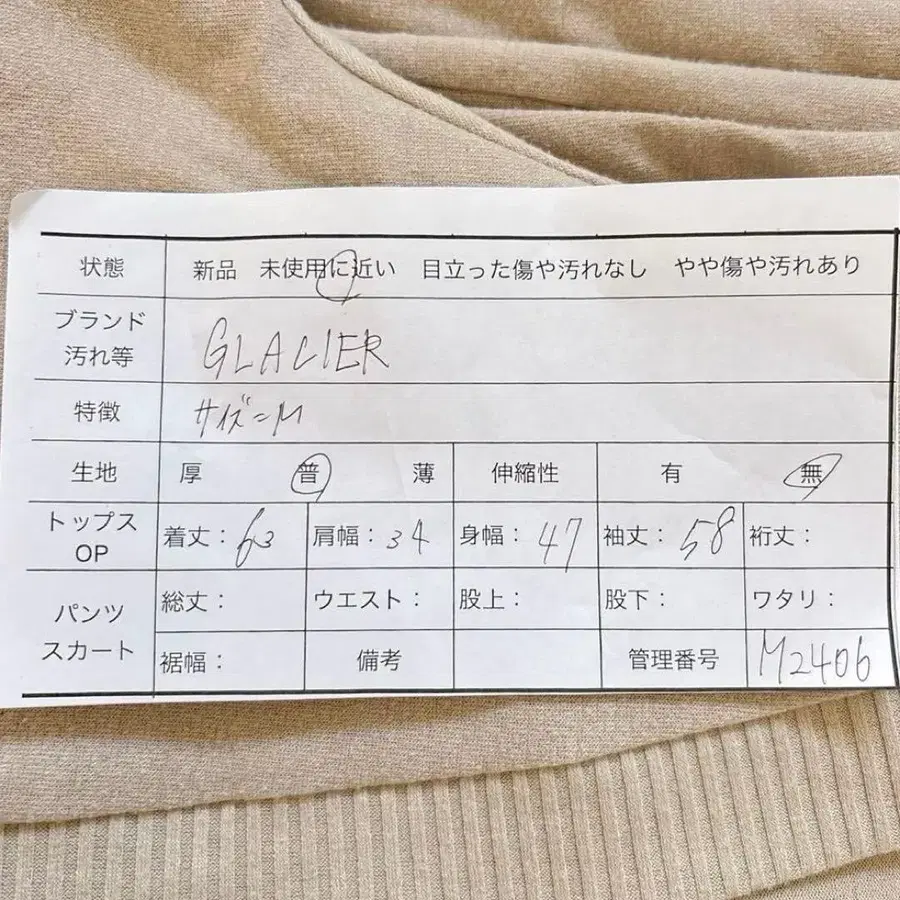 状態 新品 未使用に近い 目立った傷や汚れなし やや傷や汚れあり
ブランド
汚れ等
GLACIER
特徴 サイズ=M
生地 厚 普 薄 伸縮性 有 無
トップス
OP
着丈：63 肩幅：34 身幅：47 袖丈：58 裄丈：
パンツ
スカート
総丈： ウエスト： 股上： 股下： ワタリ：
裾幅： 備考 管理番号 M2406